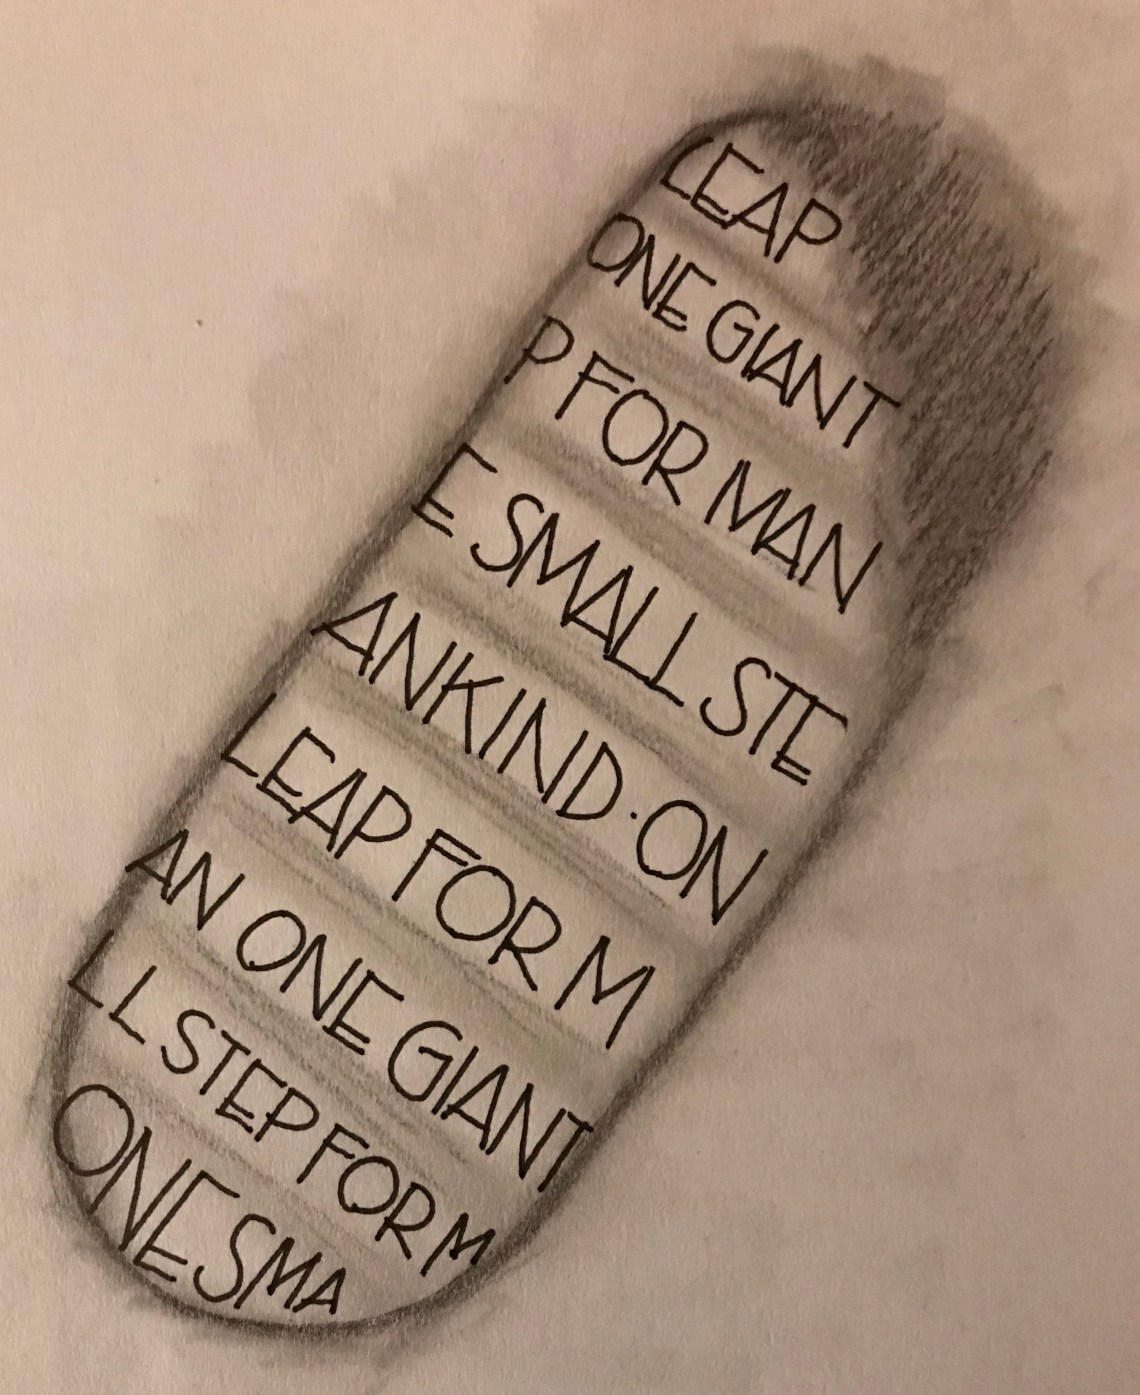 LEAP
ONE GIANT
P FOR MAN
E SMALL STE
ANKIND · ON
LEAP FOR M
AN ONE GIANT
LL STEP FOR M
ONE SMA